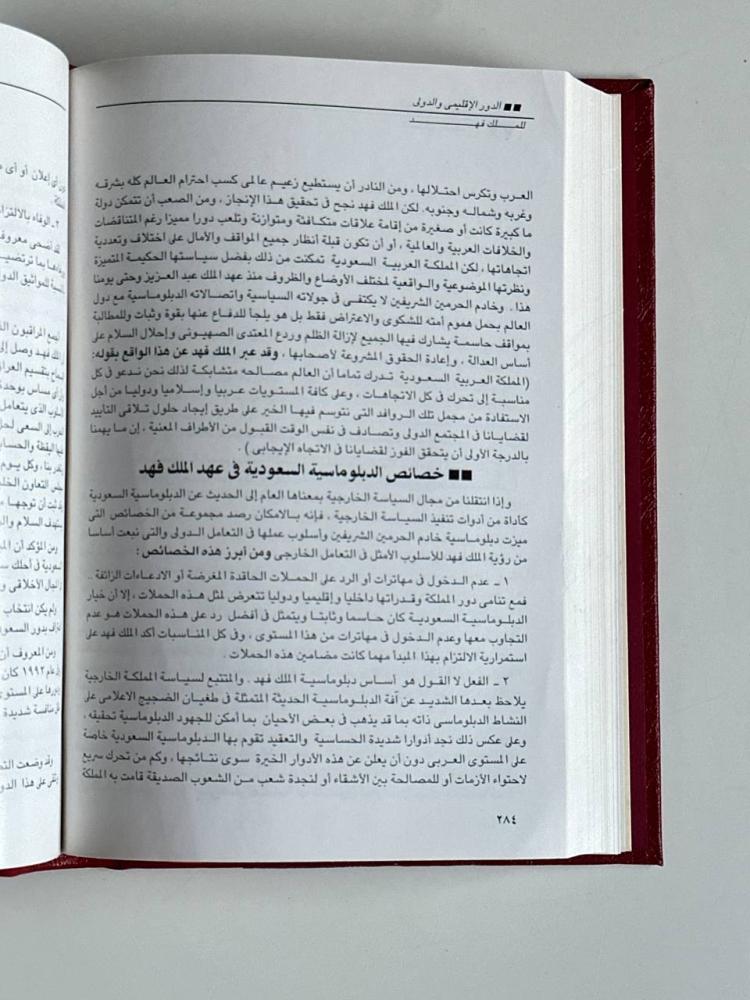 ■■ الدور الإقليمى والدولى
للملك فهد
العرب وتكرس احتلالها ، ومن النادر أن يستطيع زعيم عالمى كسب احترام العالم كله بشرقه
وغربه وشماله وجنوبه. لكن الملك فهد نجح فى تحقيق هذا الإنجاز، ومن الصعب أن تتمكن دولة
ما كبيرة كانت أو صغيرة من إقامة علاقات متكافئة ومتوازنة وتلعب دورا مميزا رغم المتناقضات
والخلافات العربية والعالمية ، أو أن تكون قبلة أنظار جميع المواقف والأمال على اختلاف وتعددية
اتجاهاتها ، لكن المملكة العربية السعودية تمكنت من ذلك بفضل سياستها الحكيمة المتميزة
ونظرتها الموضوعية والواقعية لمختلف الأوضاع والظروف منذ عهد الملك عبد العزيز وحتى يومنا
هذا . وخادم الحرمين الشريفين لا يكتفى فى جولاته السياسية واتصالاته الدبلوماسية مع دول
العالم بحمل هموم أمته للشكوى والاعتراض فقط بل هو يلجأ للدفاع عنها بقوة وثبات وللمطالبة
بمواقف حاسمة يشارك فيها الجميع لإزالة الظلم وردع المعتدى الصهيونى وإحلال السلام على
أساس العدالة ، وإعادة الحقوق المشروعة لأصحابها ، وقد عبر الملك فهد عن هذا الواقع بقوله:
(المملكة العربية السعودية تدرك تماما أن العالم مصالحه متشابكة لذلك نحن ندعو فى كل
مناسبة إلى تحرك فى كل الاتجاهات ، وعلى كافة المستويات عربيا وإسلاميا ودوليا من أجل
الاستفادة من مجمل تلك الروافد التى نتوسم فيها الخير على طريق إيجاد حلول تلاقى التأييد
لقضايانا فى المجتمع الدولى وتصادف فى نفس الوقت القبول من الأطراف المعنية ، إن ما يهمنا
بالدرجة الأولى أن يتحقق الفوز لقضايانا فى الاتجاه الإيجابى ) .
■■ خصائص الدبلوماسية السعودية فى عهد الملك فهد
وإذا انتقلنا من مجال السياسة الخارجية بمعناها العام إلى الحديث عن الدبلوماسية السعودية
كأداة من أدوات تنفيذ السياسة الخارجية ، فإنه بالامكان رصد مجموعة من الخصائص التى
ميزت دبلوماسية خادم الحرمين الشريفين وأسلوب عملها فى التعامل الدولى والتى نبعت أساسا
من رؤية الملك فهد للأسلوب الأمثل فى التعامل الخارجى ومن أبرز هذه الخصائص :
١ ـ عدم الدخول فى مهاترات أو الرد على الحملات الحاقدة المغرضة أو الادعاءات الزائفة ..
فمع تنامى دور المملكة وقدراتها داخليا وإقليميا ودوليا تتعرض لمثل هذه الحملات ، إلا أن خيار
الدبلوماسية السعودية كان حاسما وثابتا ويتمثل فى أفضل رد على هذه الحملات هو عدم
التجاوب معها وعدم الدخول فى مهاترات من هذا المستوى ، وفى كل المناسبات أكد الملك فهد على
استمرارية الالتزام بهذا المبدأ مهما كانت مضامين هذه الحملات .
٢ ـ الفعل لا القول هو أساس دبلوماسية الملك فهد . والمتتبع لسياسة المملكة الخارجية
يلاحظ بعدها الشديد عن آفة الدبلوماسية الحديثة المتمثلة فى طغيان الضجيج الاعلامى على
النشاط الدبلوماسى ذاته بما قد يذهب فى بعض الأحيان بما أمكن للجهود الدبلوماسية تحقيقه ،
وعلى عكس ذلك نجد أدوارا شديدة الحساسية والتعقيد تقوم بها الدبلوماسية السعودية خاصة
على المستوى العربى دون أن يعلن عن هذه الأدوار الخيرة سوى نتائجها ، وكم من تحرك سريع
لاحتواء الأزمات أو للمصالحة بين الأشقاء أو لنجدة شعب من الشعوب الصديقة قامت به المملكة
٢٨٤